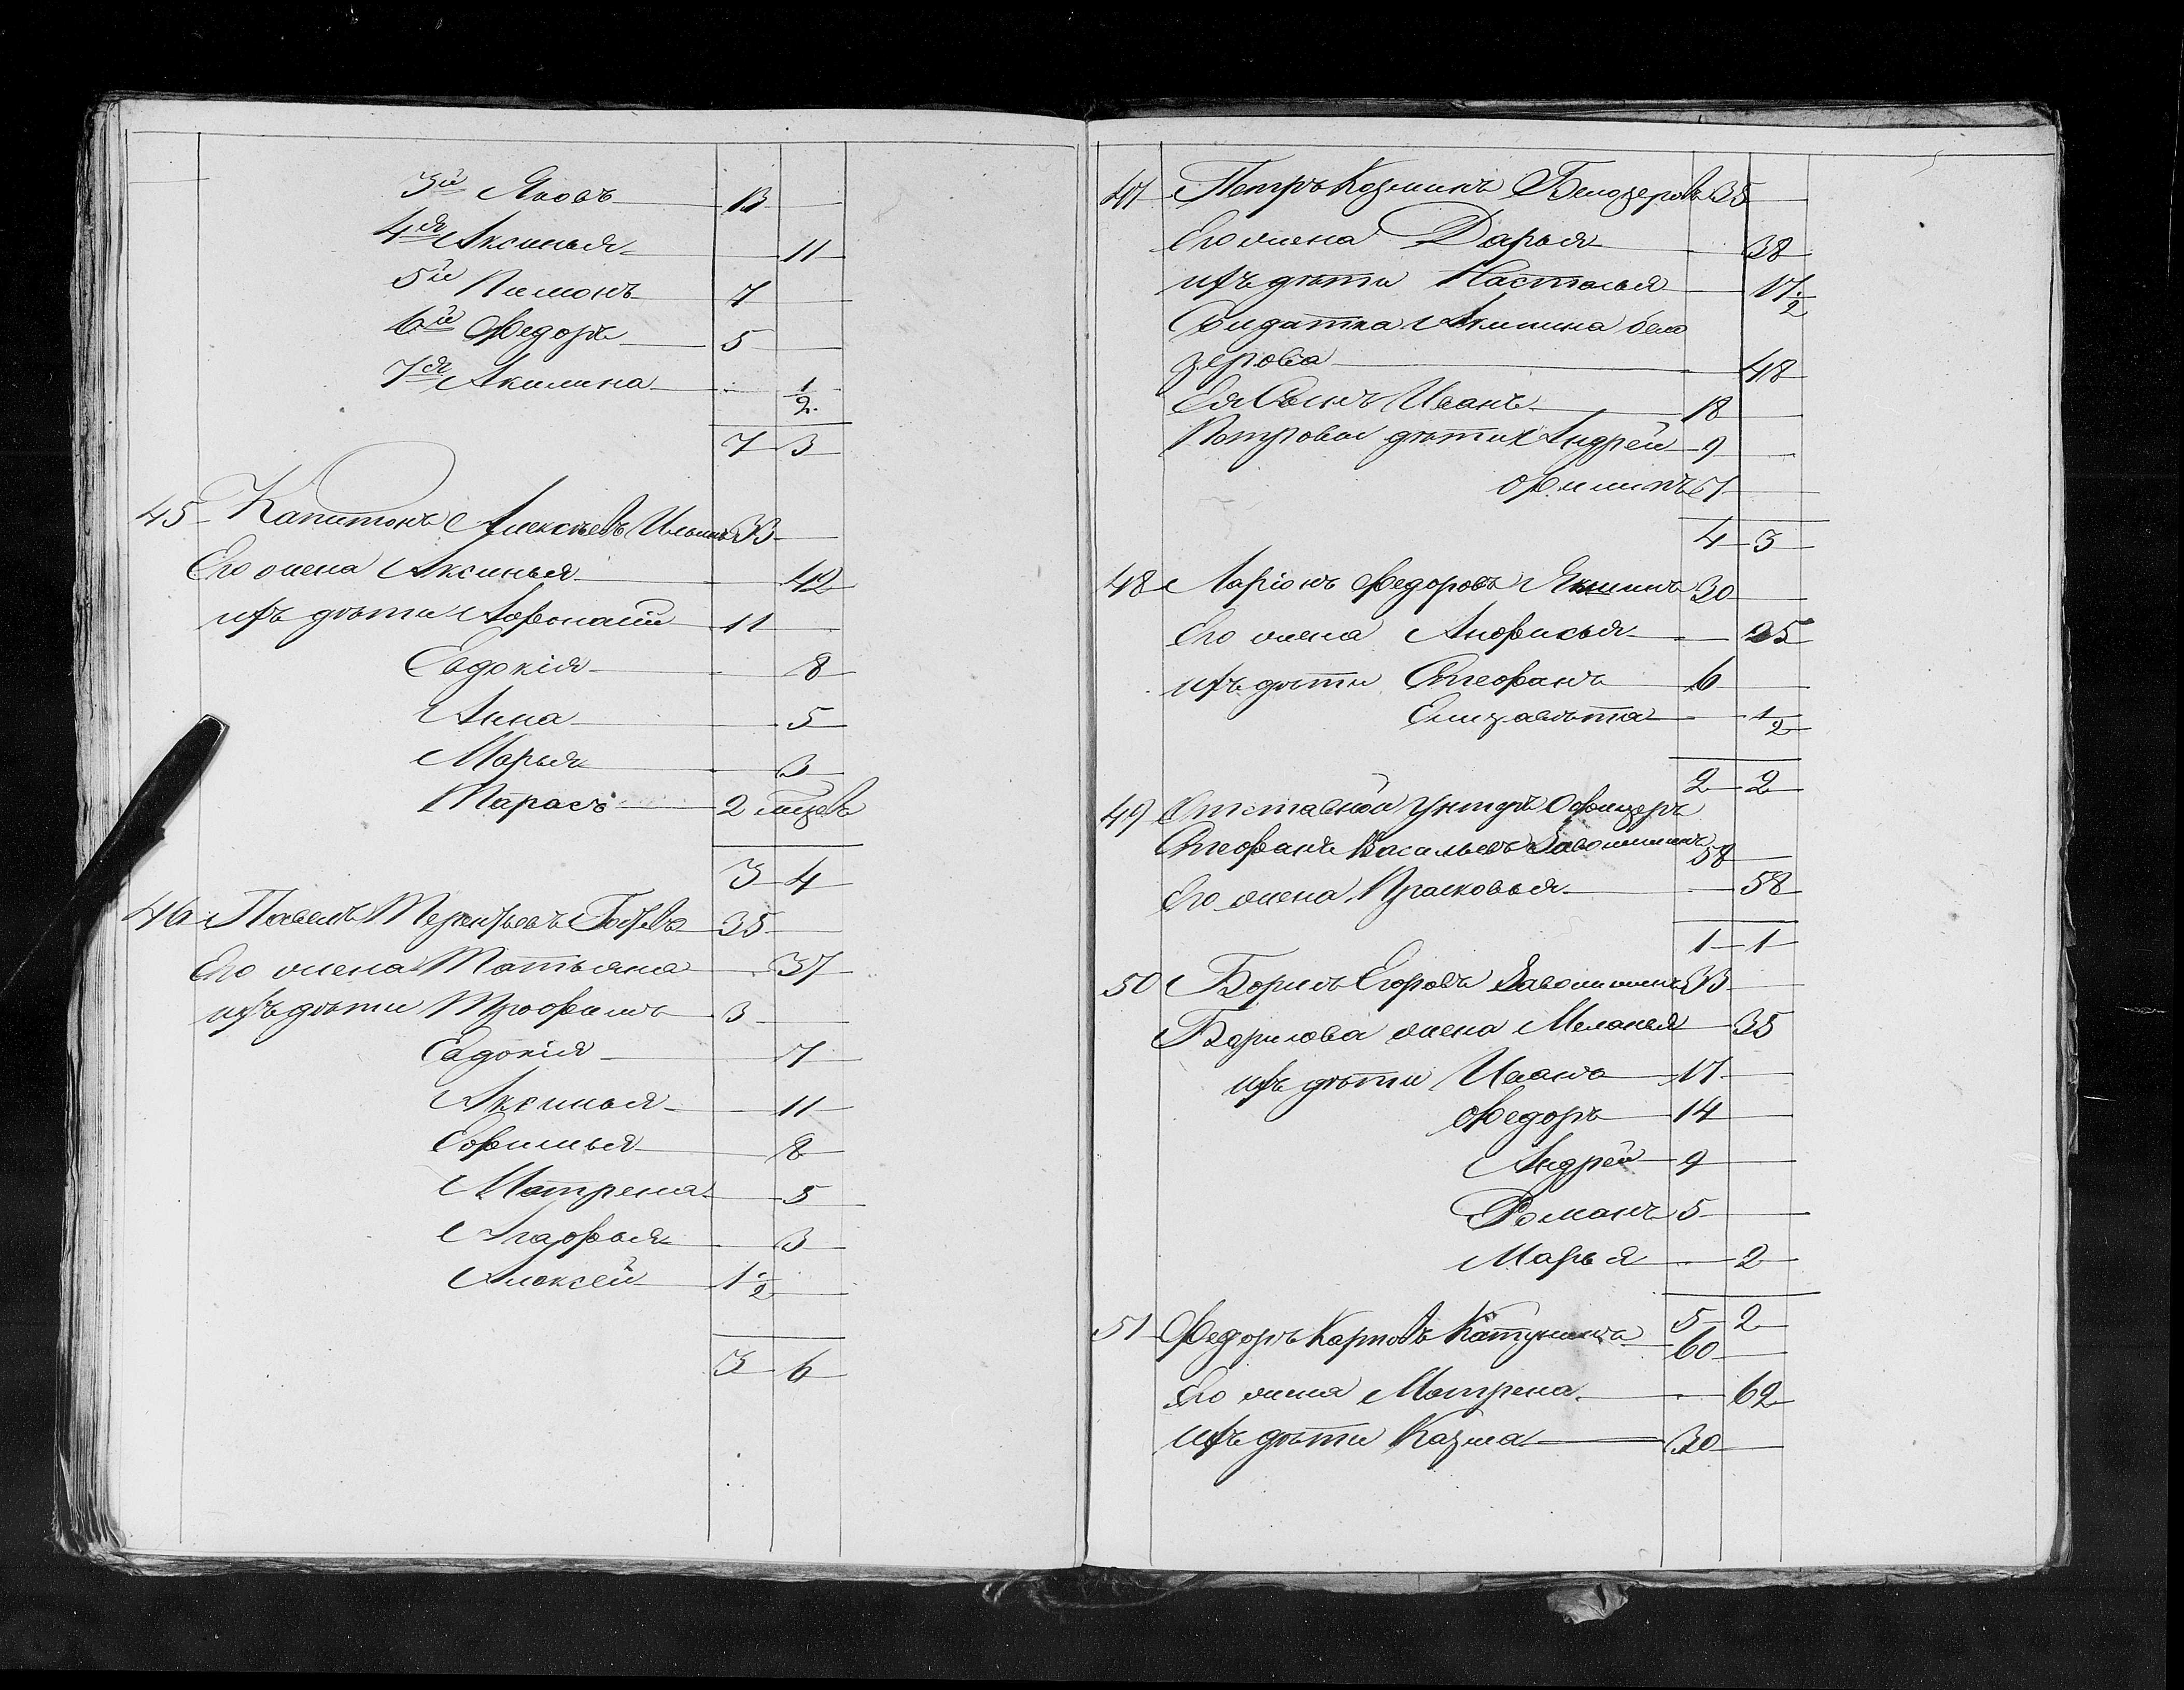 3й Яковъ 13
4я Аксинья 11
5й Пимонъ 7
6й Федоръ 5
7я Акилина 1/2
7 3
45 Капитонъ Алексѣевъ Ильинъ 33
Его жена Аксинья 42
ихъ дѣти Афонасій 11
Евдокія 8
Анна 5
Марья 3
Тарасъ 2 месцовъ
3 4
46 Павелъ Терентьевъ 35
Его жена Татьяна 37
ихъ дѣти Трофимъ 3
Евдокія 7
Аксинья 11
Ефимья 8
Матрена 5
Агафья 3
Алексей 1 1/2
3 6
47 Петръ Козминъ Белозеровъ 35
Его жена Дарья 38
ихъ дѣти Насталья 17 1/2
Солдатка Акилина бело
зерова 48
Ея Сынъ Иванъ 18
Петровы дѣти Андрей 9
Филипъ 7
4 3
48 Ларіонъ Федоровъ 30
Его жена Анфисья 25
ихъ дѣти Стефанъ 6
Елизавѣта 1/2
2 2
49 Отставной Унтеръ Офицеръ
Стефанъ Васильевъ Заволишинъ 58
Его жена Прасковья 58
1 1
50 Борисъ Егоровъ Заволишинъ 33
Борисова жена Меланея 35
ихъ дѣти Иванъ 17
Федоръ 14
Андрей 9
Романъ 5
Марья 2
5 2
51 Федоръ Карповъ Катунинъ 60
Его жена Матрена 62
ихъ дѣти Козма 30